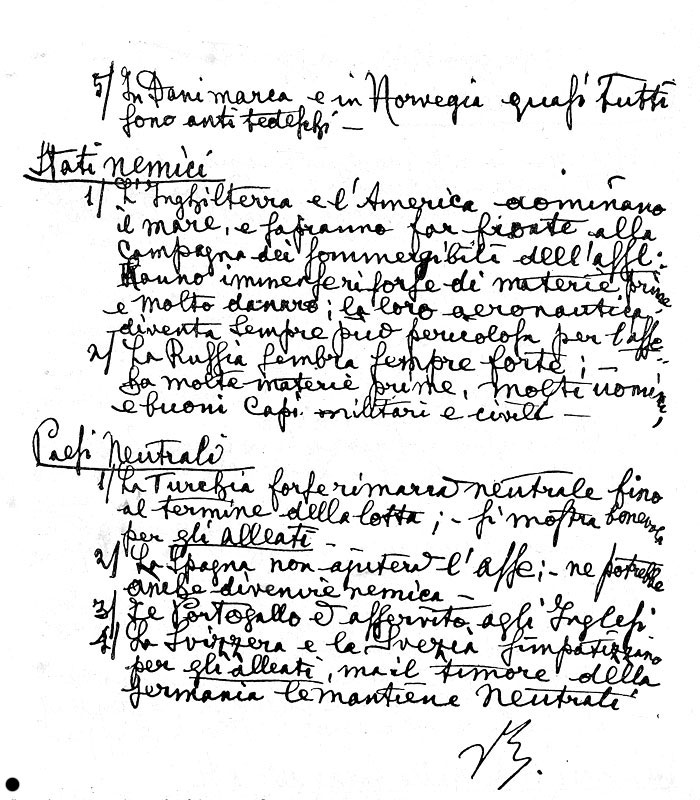 5/ In Danimarca e in Norvegia quasi tutti
sono anti tedeschi –
Stati nemici
1/ L'Inghilterra e l'America dominano
il mare, e sapranno far fronte alla
campagna dei sommergibili dell'asse:
Hanno immense risorse di materie prime
e molto danaro; la loro aeronautica
diventa sempre più pericolosa per l'asse –
2/ La Russia sembra sempre forte; –
ha molte materie prime, molti uomini,
e buoni capi militari e civili –
Paesi Neutrali
1/ La Turchia forse rimarrà neutrale fino
al termine della lotta; – si mostra benevola
per gli alleati –
2/ La Spagna non ajuterà l'Asse; – ne potrebbe
anche divenire nemica –
3/ Le Portogallo è asservito agli Inglesi
4/ La Svizzera e la Svezia simpatizzano
per gli alleati, ma il timore della
Germania le mantiene Neutrali